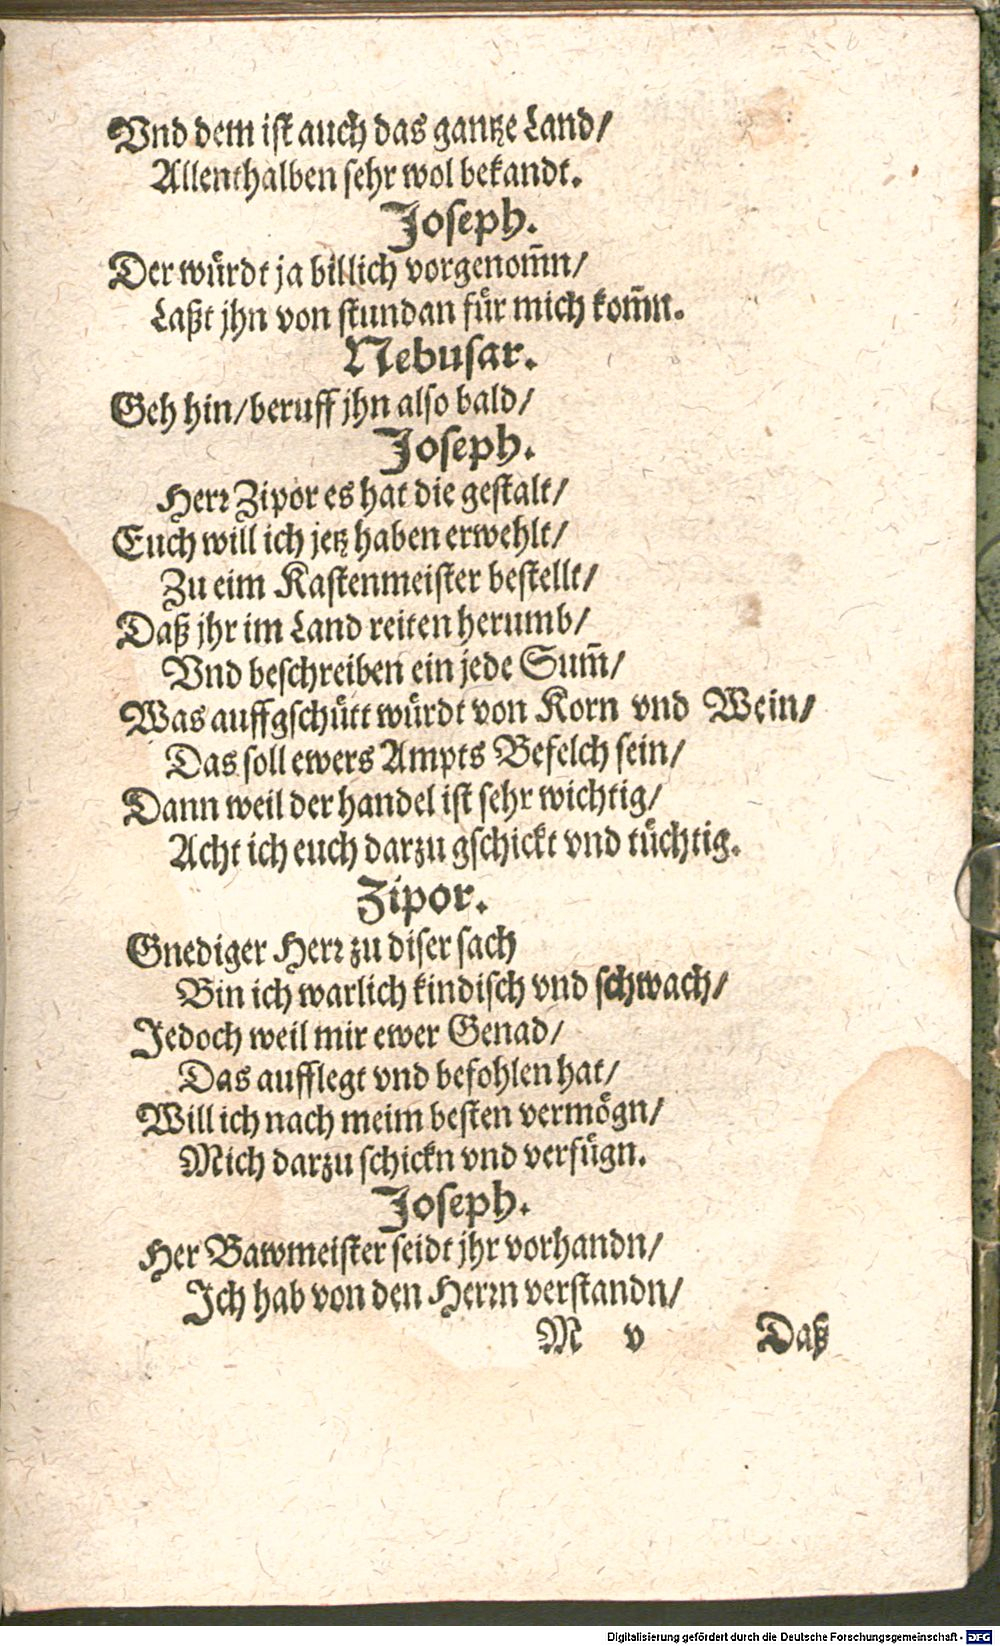 Vnd dem ist auch das gantze Land/
Allenthalben sehr wol bekandt.
Joseph.
Der würdt ja billich vorgenom̄n/
Laßt jhn von stundan für mich kom̄n.
Nebusar.
Geh hin/ beruff jhn also bald/
Joseph.
Herr Zipor es hat die gestalt/
Euch will ich jetz haben erwehlt/
Zu eim Kastenmeister bestellt/
Daß jhr im Land reiten herumb/
Vnd beschreiben ein jede Sum̄/
Was auffgschütt würdt von Korn vnd Wein/
Das soll ewers Ampts Befelch sein/
Dann weil der handel ist sehr wichtig/
Acht ich euch darzu gschickt vnd tüchtig.
Zipor.
Gnediger Herr zu diser sach
Bin ich warlich kindisch vnd schwach/
Jedoch weil mir ewer Genad/
Das aufflegt vnd befohlen hat/
Will ich nach meim besten vermögn/
Mich darzu schickn vnd verfügn.
Joseph.
Her Bawmeister seidt jhr vorhandn/
Ich hab von den Herrn verstandn/
M v Daß
Digitalisierung gefördert durch die Deutsche Forschungsgemeinschaft - DFG